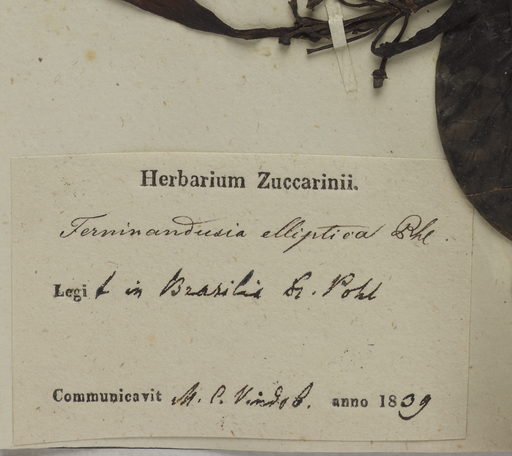 Herbarium Zuccarinii.
Terninandusia elliptica Phl.
Legit in Brasilia Dr. Pohl
Communicavit M. C. Vindob. anno 1839